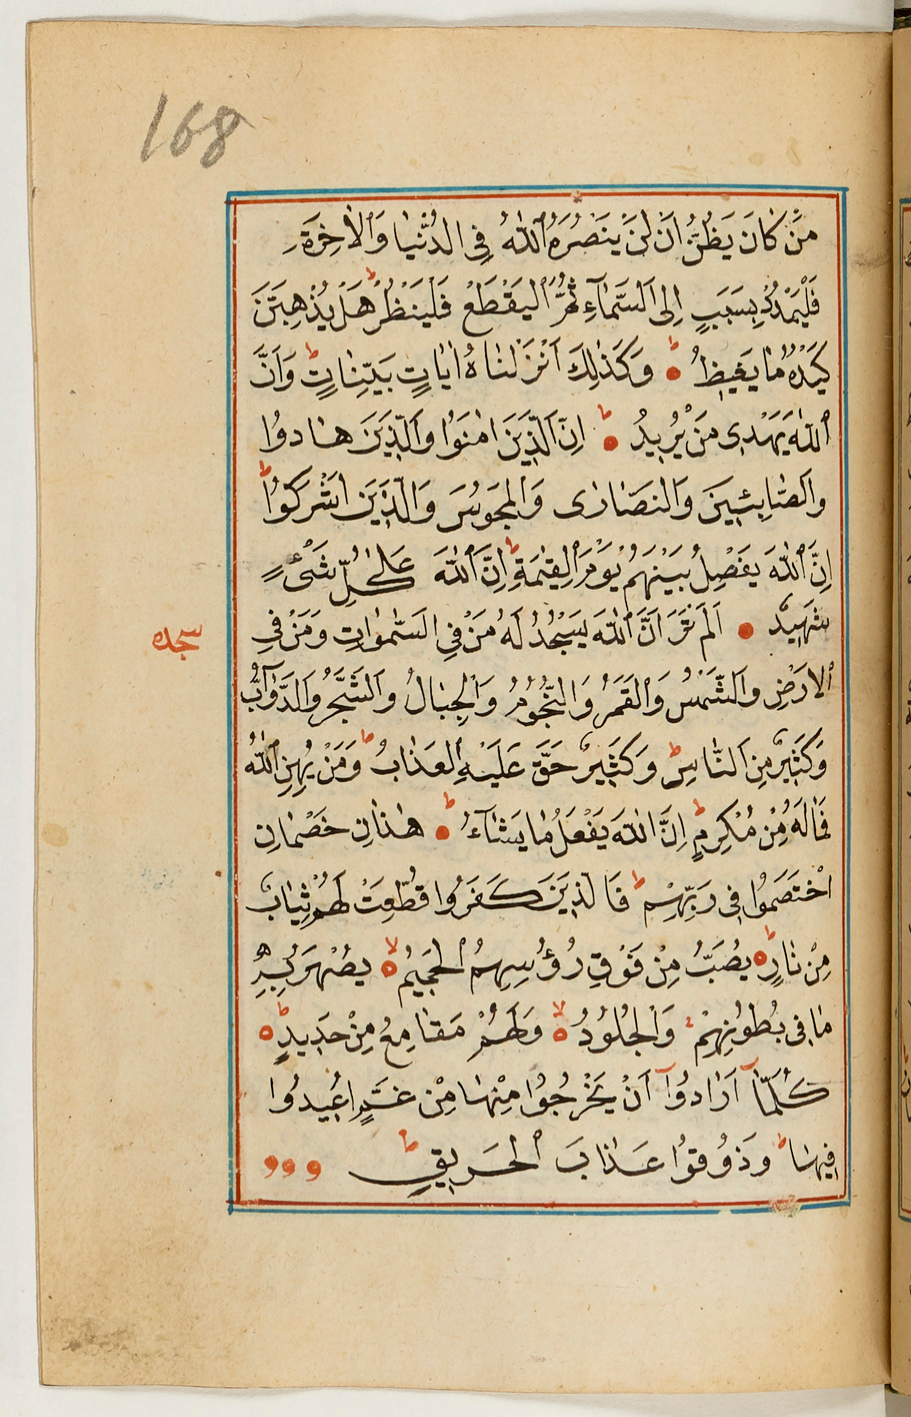 168
مَنْ كَانَ يَظُنُّ اَنْ لَنْ يَنْصُرَهُ اللّٰهُ فِى الدُّنْيَا وَالْاٰخِرَةِ
فَلْيَمْدُدْ بِسَبَبٍ اِلَى السَّمَآءِ ثُمَّ الْيَقْطَعْ فَلْيَنْظُرْ ط هَلْ يُذْهِبَنَّ
كَيْدُهُ مَا يَغيظُ ط وَكَذٰلِكَ اَنْزَلْنَاهُ اٰيَاتٍ بَيِّنَاتٍ ط وَاَنَّ
اللّٰهَ يَهْدى مَنْ يُريدُ ط اِنَّ الَّذينَ اٰمَنُوا وَالَّذينَ هَادُوا
وَالصَّابِئينَ وَالنَّصَارٰى وَالْمَجُوسَ وَالَّذينَ اَشْرَكُوا ط
اِنَّ اللّٰهَ يَفْصِلُ بَيْنَهُمْ يَوْمَ الْقِيٰمَةِ ط اِنَّ اللّٰهَ عَلٰى كُلِّ شَىْءٍ
شَهيدٌ اَلَمْ تَرَ اَنَّ اللّٰهَ يَسْجُدُ لَهُ مَنْ فِى السَّمٰوَاتِ وَمَنْ فِى
سجده
الْاَرْضِ وَالشَّمْسُ وَالْقَمَرُ وَالنُّجُومُ وَالْجِبَالُ وَالشَّجَرُ وَالدَّوَآبُّ
وَكَثيرٌ مِنَ النَّاسِ ط وَكَثيرٌ حَقَّ عَلَيْهِ الْعَذَابُ ط وَمَنْ يُهِنِ اللّٰهُ
فَمَا لَهُ مِنْ مُكْرِمٍ ط اِنَّ اللّٰهَ يَفْعَلُ مَا يَشَآءُ ط هٰذَانِ خَصْمَانِ
اخْتَصَمُوا فى رَبِّهِمْ ط فَالَّذينَ كَفَرُوا قُطِّعَتْ لَهُمْ ثِيَابٌ
مِنْ نَارٍ ط يُصَبُّ مِنْ فَوْقِ رُؤُسِهِمُ الْحَميمُ لا يُصْهَرُ بِهِ
مَا فى بُطُونِهِمْ وَالْجُلُودُ لا وَلَهُمْ مَقَامِعُ مِنْ حَديدٍ ط
كُلَّمَآ اَرَادُوآ اَنْ يَخْرُجُوا مِنْهَا مِنْ غَمٍّ اُعيدُوا
فيهَا ط وَذُوقُوا عَذَابَ الْحَريقِ ط